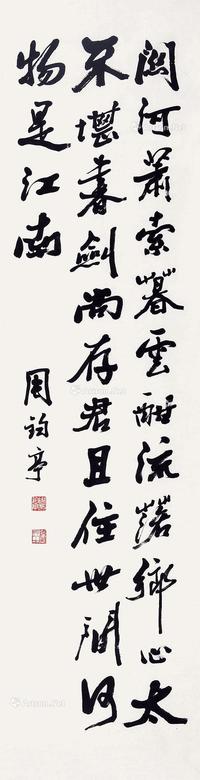 關河蕭索暮雲酣流落鄉心太
不堪書劍尚存君且住世間何
物是江南
周鈞亭